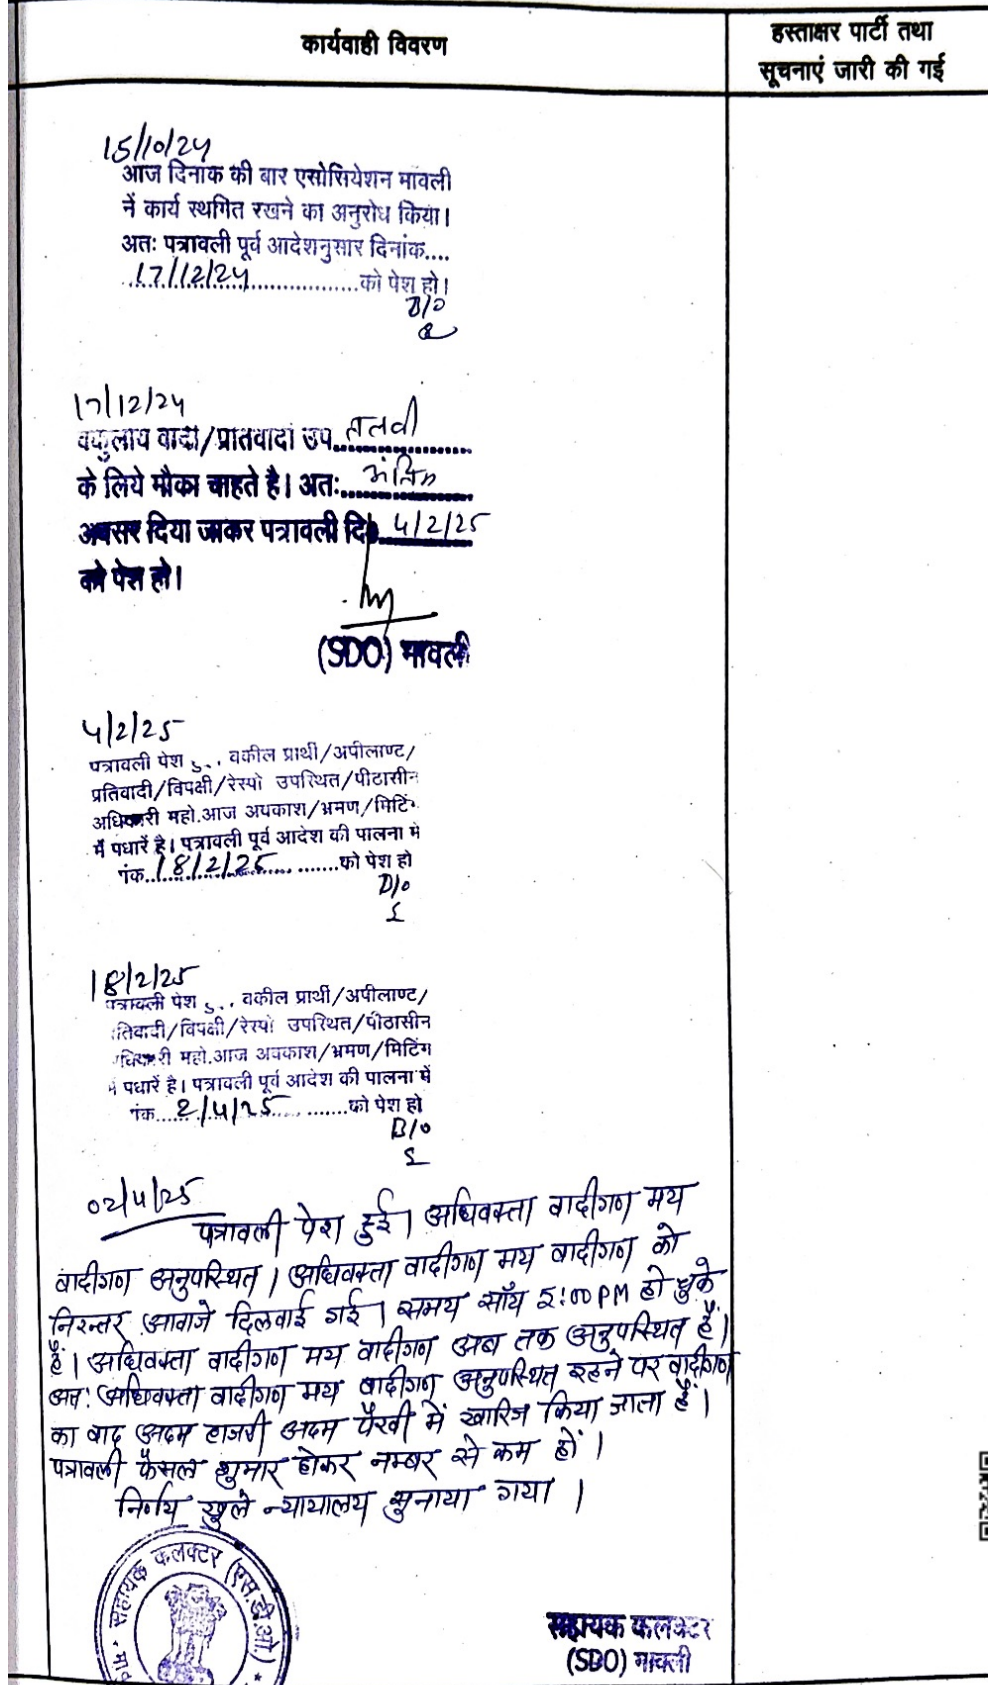 कार्यवाही विवरण
हस्ताक्षर पार्टी तथा
सूचनाएं जारी की गई
15/10/24
आज दिनांक की बार एसोसियेशन मावली
नें कार्य स्थगित रखने का अनुरोध किया।
अतः पत्रावली पूर्व आदेशनुसार दिनांक....
17/12/24 को पेश हो।
17/12/24
वकुलाय वादी/प्रातवादी उप. तलवी
के लिये मौका चाहते है। अतः अंतिम
अवसर दिया जाकर पत्रावली दि. 4/2/25
को पेश हो।
(SDO) मावली
4/2/25
पत्रावली पेश वकील प्रार्थी/अपीलाण्ट/
प्रतिवादी/विपक्षी/रेस्पो उपस्थित/पीठासीन
अधिकारी महो.आज अवकाश/भ्रमण/मिटिंग
में पधारें है। पत्रावली पूर्व आदेश की पालना में
नंक 18/2/25 को पेश हो
18/2/25
पत्रावली पेश वकील प्रार्थी/अपीलाण्ट/
तिवादी/विपक्षी/रेस्पो उपस्थित/पीठासीन
धिकारी महो.आज अवकाश/भ्रमण/मिटिंग
में पधारें है। पत्रावली पूर्व आदेश की पालना में
नंक 2/4/25 को पेश हो
02/4/25
पत्रावली पेश हुई। अधिवक्ता वादीगण मय
वादीगण अनुपस्थित। अधिवक्ता वादीगण मय वादीगण को
निरन्तर आवाजे दिलवाई गई। समय साँय 5:00 PM हो चुके
हैं। अधिवक्ता वादीगण मय वादीगण अब तक अनुपस्थित हैं।
अतः अधिवक्ता वादीगण मय वादीगण अनुपस्थित रहने पर वादीगण
का वाद अदम हाजरी अदम पैरवी में खारिज किया जाता हैं।
पत्रावली फैसल शुमार होकर नम्बर से कम हों।
निर्णय खुले न्यायालय सुनाया गया।
सहायक कलक्टर (एस.डी.ओ.)
सहायक कलक्टर
(SDO) मावली